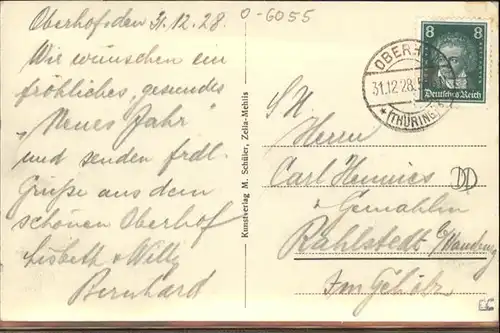 Oberhof, den 31.12.28.
0-6055
Wir wünschen ein
fröhliches, gesundes
"Neues Jahr"
und senden frdl.
Grüße aus dem
schönen Oberhof
Lisbeth + Willy
Bernhard
Kunstverlag M. Schüler, Zella-Mehlis
8 8
Deutsches Reich
OBERH
31.12.28.
* (THÜRING
S. H.
Herrn
Carl Hinrics
+ Gemahlin
Rahlstedt b/Hamburg
Im Gehölz